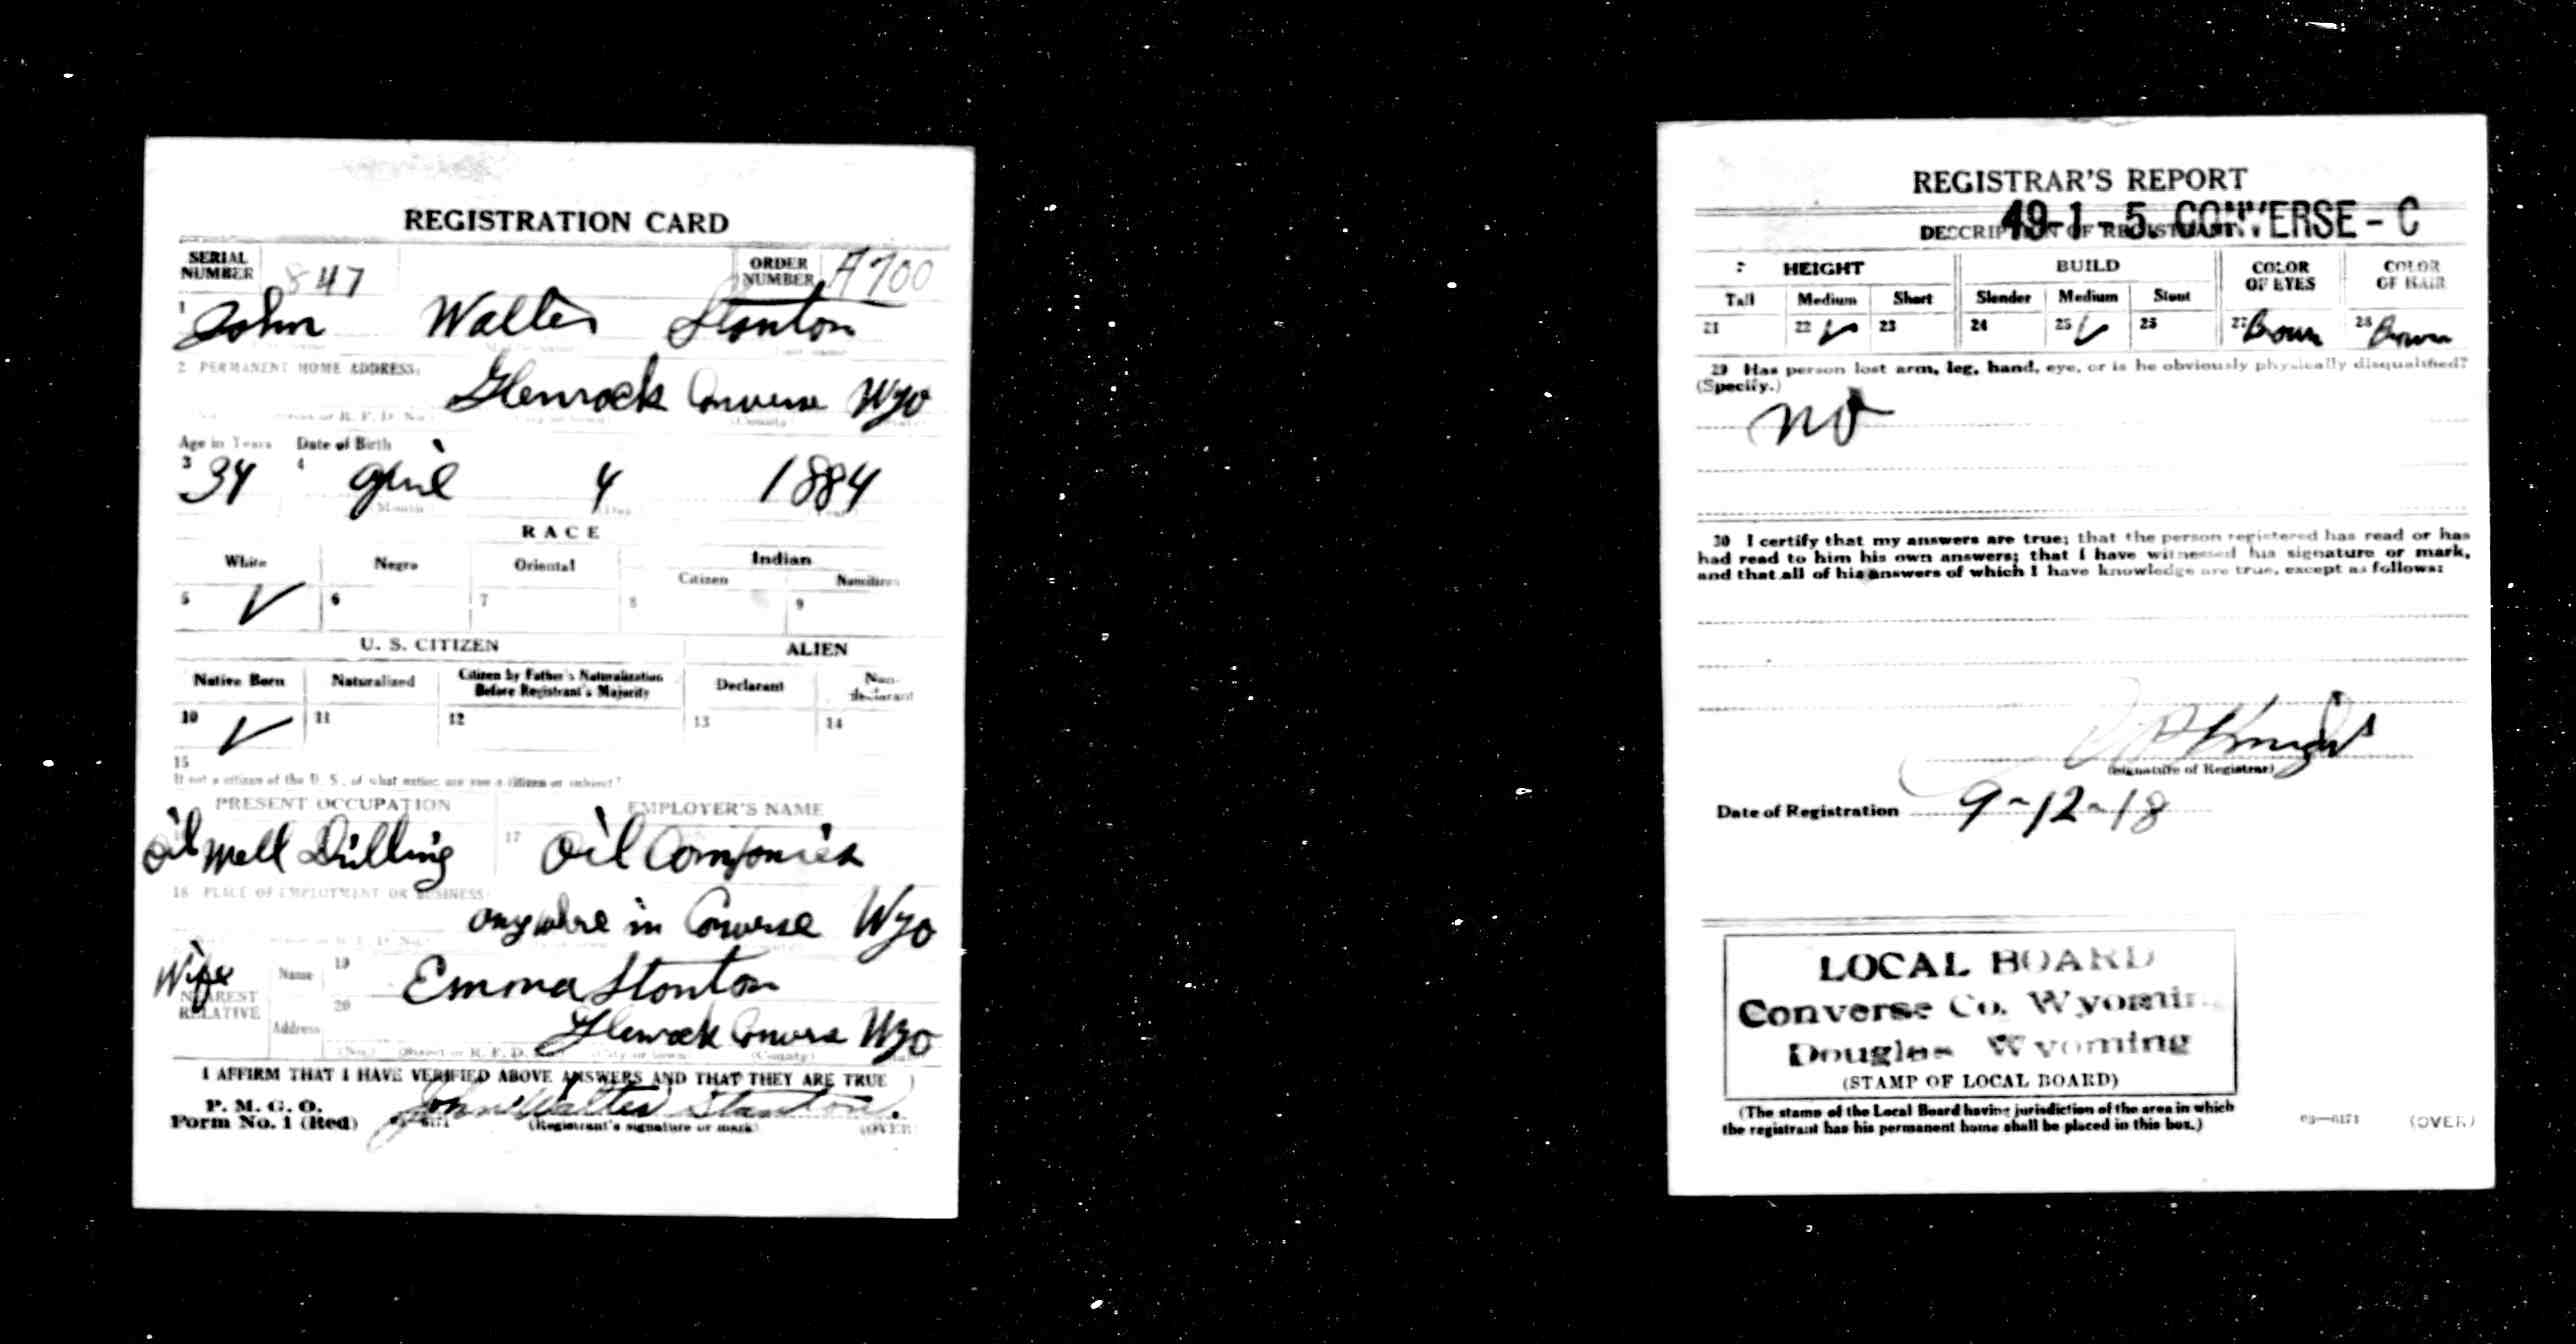 REGISTRATION CARD
SERIAL NUMBER 847 ORDER NUMBER A700
1 John Walter Stanton
2 PERMANENT HOME ADDRESS:
Glenrock Converse Wyo
Age in Years Date of Birth
3 34 4 April 4 1884
Month
RACE
White Negro Oriental Indian
Citizen
5 ✓ 6 7 8 9
U. S. CITIZEN ALIEN
Native Born Naturalized Citizen by Father's Naturalization Before Registrant's Majority Declarant Non-declarant
10 ✓ 11 12 13 14
15
If not a citizen of the U. S., of what nation are you a citizen or subject?
PRESENT OCCUPATION EMPLOYER'S NAME
Oil Well Drilling 17 Oil Companies
18 PLACE OF EMPLOYMENT OR BUSINESS:
anywhere in Converse Wyo
Wife
NEAREST RELATIVE
Name 19 Emma Stanton
Address 20 Glenrock Converse Wyo
(No.) (Street or R. F. D. No.) (City or town) (County)
I AFFIRM THAT I HAVE VERIFIED ABOVE ANSWERS AND THAT THEY ARE TRUE
P. M. G. O.
Form No. 1 (Red) John Walter Stanton
(Registrant's signature or mark) (OVER)
REGISTRAR'S REPORT
49-1-5. CONVERSE - C
DESCRIPTION OF REGISTRANT
HEIGHT BUILD COLOR OF EYES COLOR OF HAIR
Tall Medium Short Slender Medium Stout
21 22 ✓ 23 24 25 ✓ 26 27 Brown 28 Brown
29 Has person lost arm, leg, hand, eye, or is he obviously physically disqualified?
(Specify.)
no
30 I certify that my answers are true; that the person registered has read or has
had read to him his own answers; that I have witnessed his signature or mark,
and that all of his answers of which I have knowledge are true, except as follows:
Knight
(Signature of Registrar)
Date of Registration 9-12-18
LOCAL BOARD
Converse Co. Wyoming
Douglas Wyoming
(STAMP OF LOCAL BOARD)
(The stamp of the Local Board having jurisdiction of the area in which
the registrant has his permanent home shall be placed in this box.)
03—6171 (OVER)